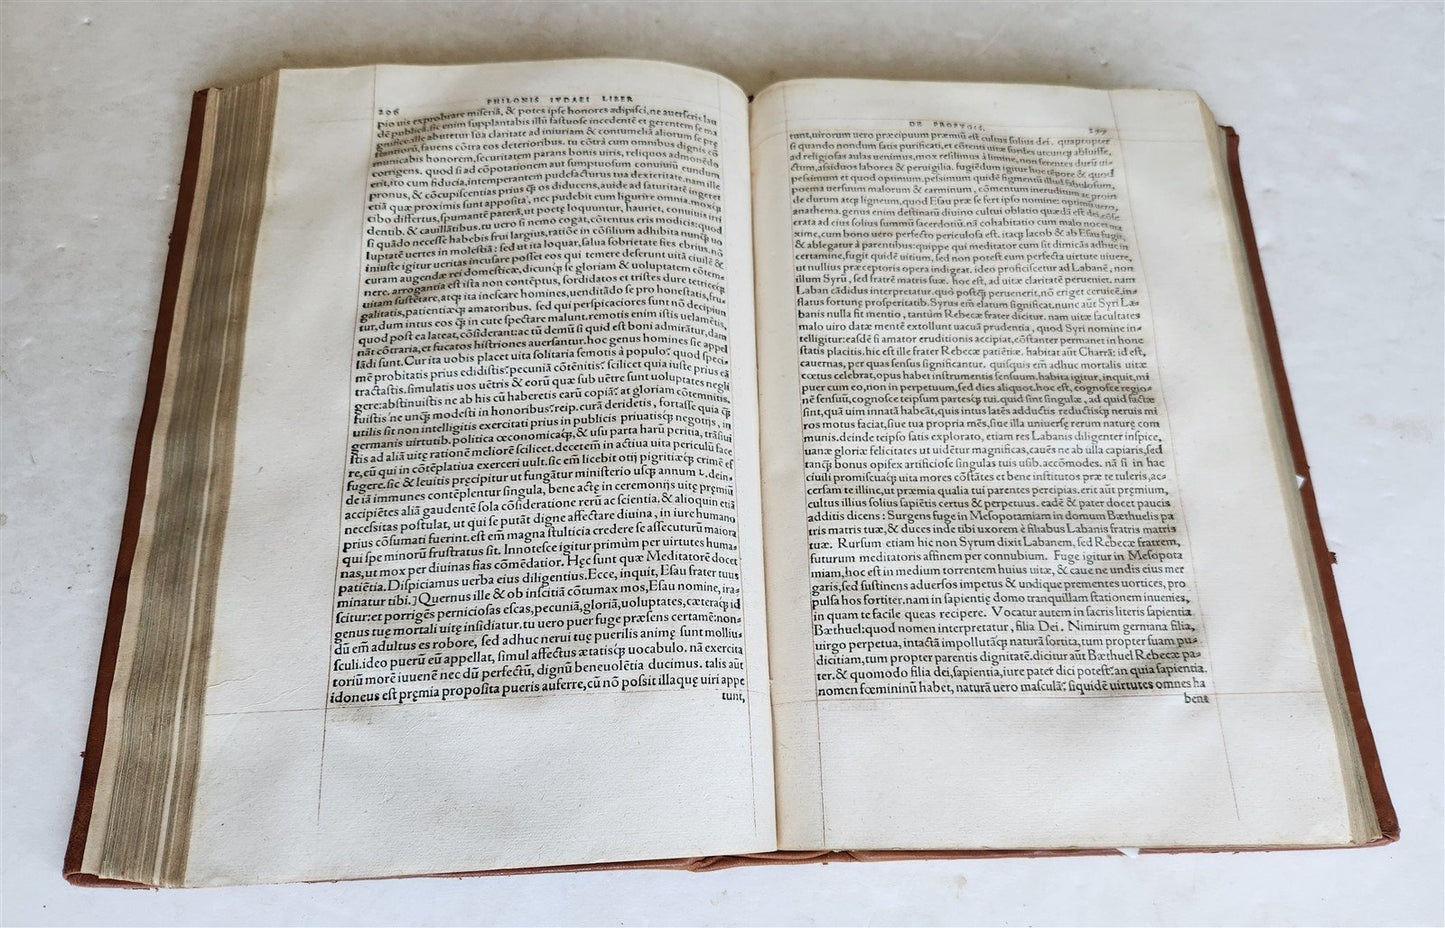 206 PHILONIS IVDAEI LIBER
pio uis exprobrare miseriā, & potes ipse honores adipisci, ne auerseris: lau
dē publicā. sic enim supplantabis illū fastuose incedentē et gerentem se ma
gnifice: ille abutetur sua claritate ad iniuriam & contumeliā aliorum se prę
stantiorū, fauens cōtra eos deterioribus. tu cōtrā cum omnibus dignis cō
municabis honorem, securitatem parans bonis uiris, reliquos admonēdo
corrigens. quod si ad cōpotationem aut sumptuosum conuiuiū eundum
erit, ito cum fiducia, intemperantem pudefacturus tua dexteritate. nam ille
pronus, & cōcupiscentias prius q̄ os diducens, auide ad saturitatē ingeret
etiā quæ proximis sunt apposita, nec pudebit eum ligurire omnia. moxq́;
cibo differtus, spumantē paterā, ut poetę loquuntur, hauriet, conuiuis irri
dentib. & cauillātibus. tu uero si nemo cogat, cōtentus eris modicis: quod
si quādo necesse habebis frui largius, ratiōe in cōsilium adhibita nunq̄ uo
luptatē uertes in molestiā: sed ut ita loquar, salua sobrietate fies ebrius. nō
iniuste igitur ueritas incusare posset eos qui temere deserunt uitā ciuilē &
curam augendæ rei domesticæ, dicuntq́; se gloriam & uoluptatem cōtem-
nere. arrogantia est ista non contēptus, sordidatos et tristes dure tetriceq́;
uitam sustētare, atq́; ita inescare homines, uenditādo se pro honestatis, fru-
galitatis, patientiæq́; amatoribus. sed qui perspicaciores sunt nō decipiun
tur, dum intus eos q̄ in cute spectare malunt. remotis enim istis uelamētis,
quod post ea lateat, cōsiderant: ac tū demū si quid est boni admirātur, dam
nāt cōtraria, et fucatos histriones auersantur. hoc genus homines sic appel
lādi sunt. Cur ita uobis placet uita solitaria semotis à populo? quod speci-
mē probitatis prius edidistis? pecuniā cōtēnitis? scilicet quia iuste prius eā
tractastis. simulatis uos uētris & eorū quæ sub uētre sunt uoluptates negli
gere: abstinuistis ne ab his cū haberetis earū copiā? at gloriam cōtemnitis.
fuistis ne unq̄ modesti in honoribus? reip. curā deridetis, fortasse quia q̄
utilis sit non intelligitis exercitati prius in publicis priuatisq́; negotijs, in
germanis uirtutib. politica œconomicaq́;, & usu parta harū peritia, trāsiui
stis ad aliā uitę rationē meliorē scilicet. decet em̄ in actiua uita periculū face
re, eū qui in cōtēplatiua exerceri uult. sic em̄ licebit otij pigritiæq́; crimē ef
fugere. sic & leuitis pręcipitur ut fungātur ministerio usq́; annum L. dein-
de iā immunes contēplentur singula, bene actę in ceremonijs uitę pręmiū
accipiētes aliā gaudentē sola cōsideratione rerū ac scientia. & alioquin etiā
necessitas postulat, ut qui se putāt digne affectare diuina, in iure humano
prius cōsumati fuerint. est em̄ magna stulticia credere se assecuturū maiora
qui spe minorū frustratus sit. Innotesce igitur primùm per uirtutes huma-
nas, ut mox per diuinas fias cōmēdatior. Hęc sunt quæ Meditatorē docet
patiētia. Dispiciamus uerba eius diligentius. Ecce, inquit, Esau frater tuus
minatur tibi. ] Quernus ille & ob inscitiā cōtumax mos, Esau nomine, ira-
scitur: et porrigēs perniciosas escas, pecuniā, gloriā, uoluptates, cæteraq́; id
genus tuę mortali uitę insidiatur. tu uero puer fuge præsens certamē: non-
dū em̄ adultus es robore, sed adhuc nerui tuę puerilis animę sunt mollius-
sculi. ideo puerū eū appellat, simul affectus ætatisq́; uocabulo. nā exercita
toriū morē iuuenē nec dū perfectū, dignū beneuolētia ducimus. talis aūt
idoneus est pręmia proposita pueris auferre, cū nō possit illa quę uiri appe
tunt,
DE PROFVGIS. 207
tunt, uirorum uero præcipuum præmiū est cultus solius dei. quapropter
si quando nondum satis purificati, et cōtenti uitæ sordes utcunq́; abluisse,
ad religiosas aulas uenimus, mox resilimus à limine, non ferentes durū ui-
ctum, assiduos labores & peruigilia. fugiēdum igitur hoc tēpore & quod
pessimum et quod optimum. pessimum quidē figmentū illud fabulosum,
poema uersuum malorum & carminum, cōmentum ineruditum ac proin
de durum atq́; ligneum, quod Esau præ se fert ipso nomine: optimū uero,
anathema. genus enim destinatū diuino cultui oblatio quædā est dei, cōse
crata ad eius solius summū sacerdotiū. nā cohabitatio cum malo nocet ma
xime, cum bono uero perfecto periculosa est. itaq́; Iacob & ab Esau fugit,
& ablegatur à parentibus: quippe qui meditator cum sit dimicās adhuc in
certamine, fugit quidē uitium, sed non potest cum perfecta uirtute uiuere,
ut nullius præceptoris opera indigeat. ideo proficiscetur ad Labanē, non
illum Syrū, sed fratrē matris suæ. hoc est, ad uitæ claritatē perueniet. nam
Laban cādidus interpretatur. quo postq̄ peruenerit, nō eriget ceruicē, in-
flatus fortunę prosperitatib. Syrus em̄ elatum significat. nunc aūt Syri La-
banis nulla fit mentio, tantùm Rebecæ frater dicitur. nam uitæ facultates
malo uiro datæ mentē extollunt uacuā prudentia, quod Syri nomine in-
telligitur: easdē si amator eruditionis accipiat, cōstanter permanet in hone
statis placitis. hic est ille frater Rebecæ patiētiæ. habitat aūt Charrā: id est,
cauernas, per quas sensus significantur. quisquis em̄ adhuc mortalis uitæ
cœtus celebrat, opus habet instrumentis sensuum. habita igitur, inquit, mi
puer cum eo, non in perpetuum, sed dies aliquot. hoc est, cognosce regio-
nē sensuū, cognosce teipsum partesq́; tui. quid sint singulæ, ad quid factæ
sint, quā uim innatā habeāt, quis intus latēs adductis reductisq́; neruis mi
ros motus faciat, siue tua propria mēs, siue illa uniuersę rerum naturę com
munis. deinde teipso satis explorato, etiam res Labanis diligenter inspice,
uanæ gloriæ felicitates ut uidētur magnificas, caues ne ab ulla capiaris, sed
tanq̄ bonus opifex artificiose singulas tuis usib. accōmodes. nā si in hac
ciuili promiscuaq́; uita mores cōstātes et bene institutos præ te tuleris, ac-
cersam te illinc, ut præmia qualia tui parentes percipias. erit aūt pręmium,
cultus illius solius sapiētis certus & perpetuus. eadē & pater docet paucis
additis dicens: Surgens fuge in Mesopotamiam in domum Bæthuelis pa
tris matris tuæ, & duces inde tibi uxorem è filiabus Labanis fratris matris
tuæ. Rursum etiam hic non Syrum dixit Labanem, sed Rebecæ fratrem,
futurum meditatoris affinem per connubium. Fuge igitur in Mesopota
miam, hoc est in medium torrentem huius uitæ, & caue ne undis eius mer
garis, sed sustinens aduersos impetus & undique prementes uortices, pro
pulsa hos fortiter. nam in sapientię domo tranquillam stationem inuenies,
in quam te facile queas recipere. Vocatur autem in sacris literis sapientia
Bæthuel: quod nomen interpretatur, filia Dei. Nimirum germana filia,
uirgo perpetua, intactā impollutāq́; naturā sortita, tum propter suam pu-
dicitiam, tum propter parentis dignitatē. dicitur aūt Bæthuel Rebecæ pa-
ter. & quomodo filia dei, sapientia, iure pater dici potest? an quia sapientia.
nomen fœmininū habet, naturā uero masculā? siquidē uirtutes omnes ha
bent